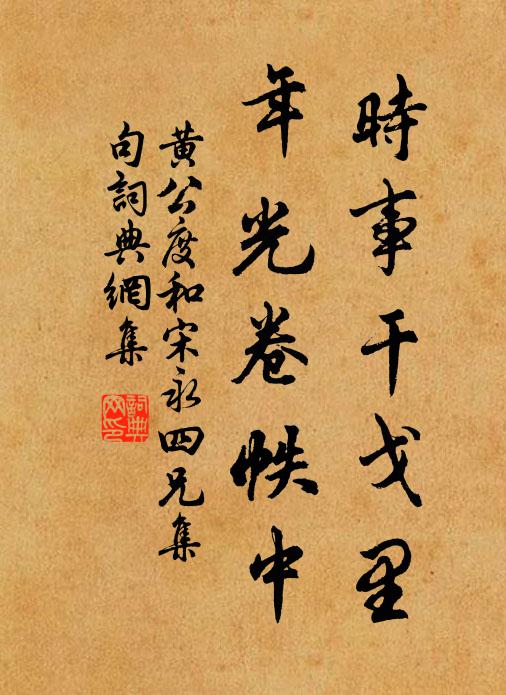 時事干戈里
年光卷帙中
黄公度和宋永四兄集
句詞典網集
詞典網印